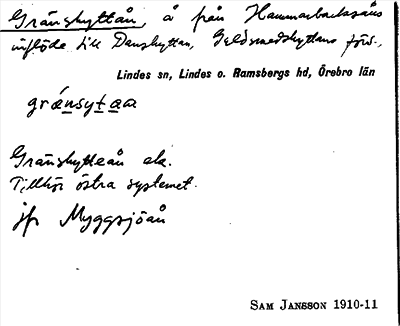 Gränshyttån, å från Hammarbacksjöns
inflöde till Danshyttan, Guldsmedshyttans förs.,
Lindes sn, Lindes o. Ramsbergs hd, Örebro län
gränsytaa
Gränshytteån ek.
Tillhör östra systemet.
jfr Myggsjöån
SAM JANSSON 1910-11